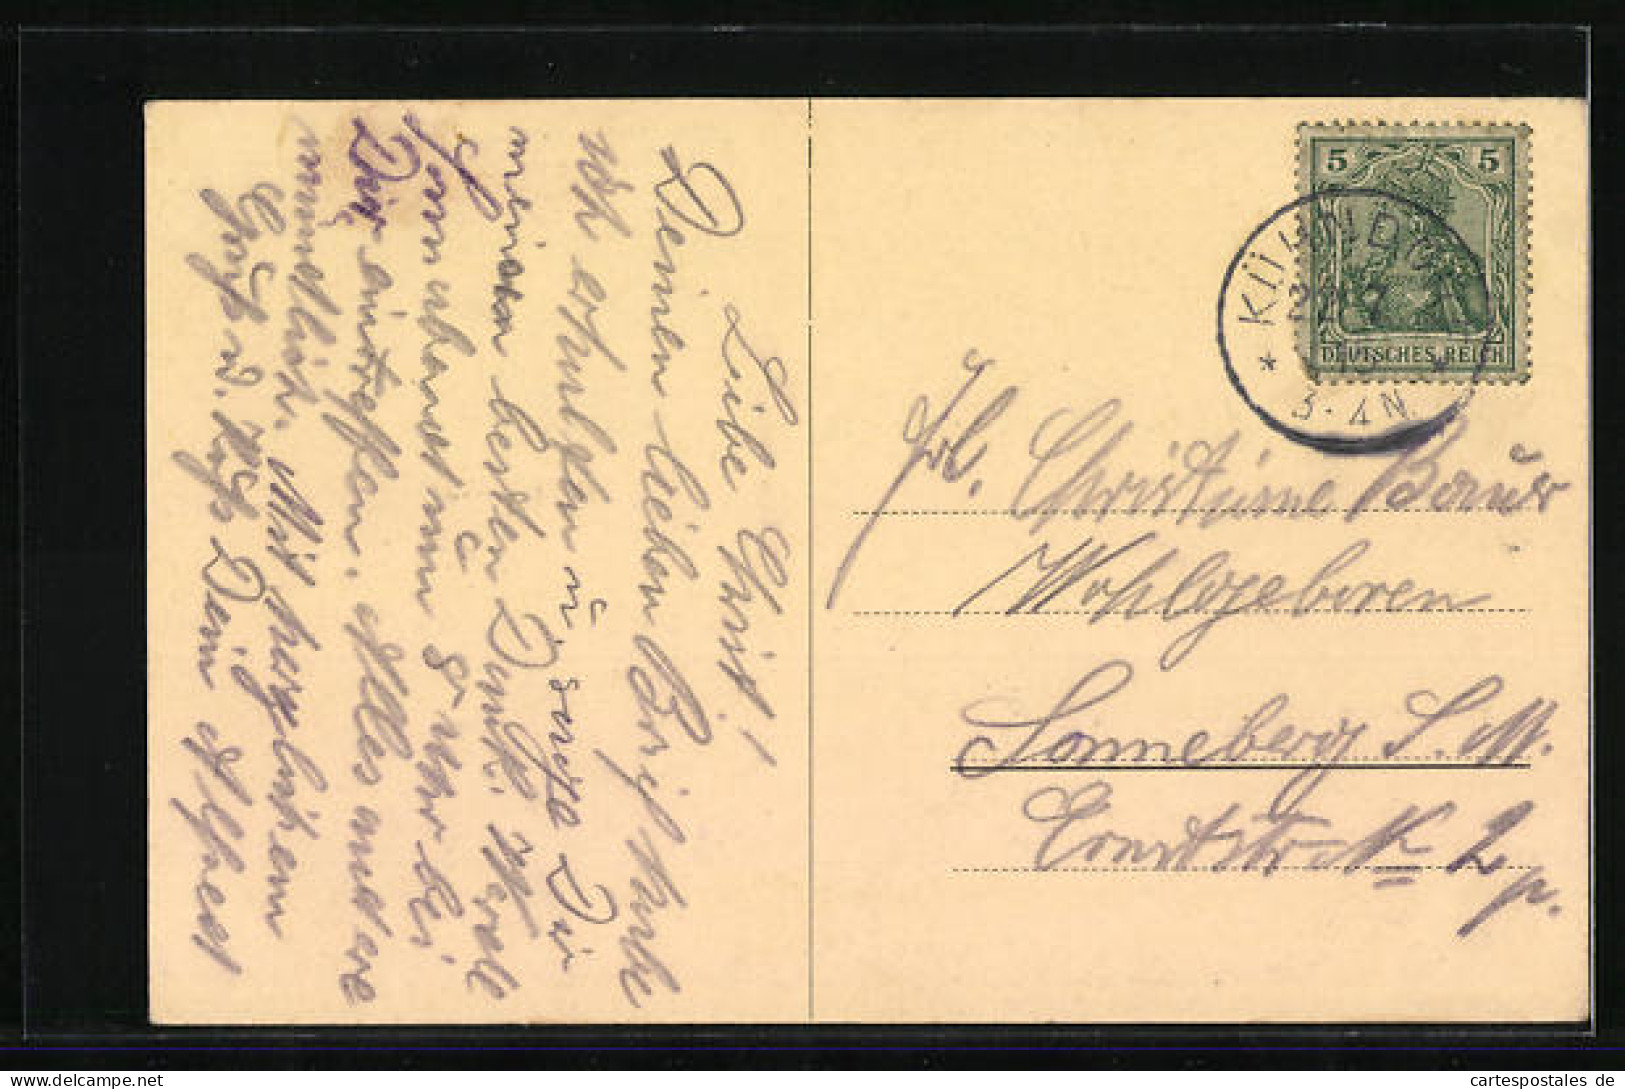 Liebe Christ!
Deinen lieben Brief habe
ich erhalten u. sage Dir
meinen besten Dank. Werde
Sonnabend um 8 Uhr bei
Dir eintreffen. Alles andere
mündlich. Mit herzlichem
Gruß u. Kuß Dein Alfred
5 5
DEUTSCHES REICH
KÜHNDORF
3-4 N.
Frl. Christine Bauer
Wohlgeboren
Sonneberg S. M.
Ernststr. 2 p.
cartespostales de
www.cartespostales.eu